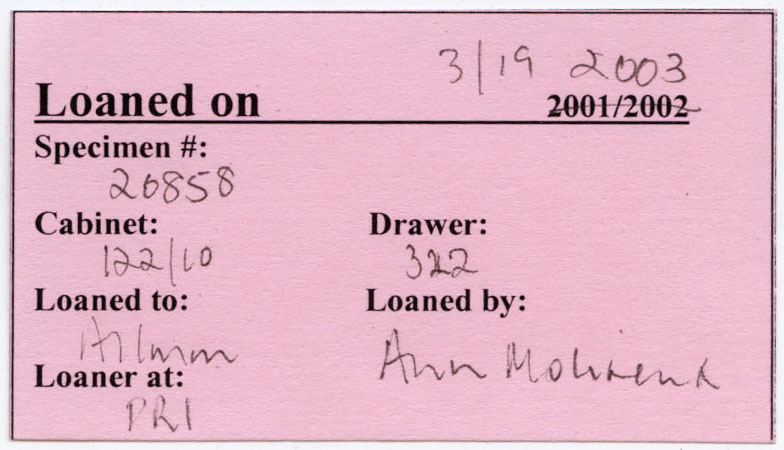 3/19 2003
Loaned on 2001/2002
Specimen #:
20858
Cabinet: Drawer:
122/10 322
Loaned to: Loaned by:
Allmon
Ann
Loaner at:
PRI